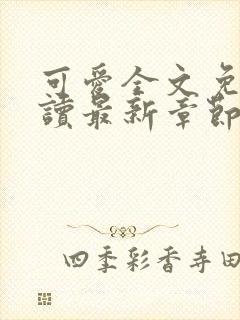 可愛全文免
讀最新章節
四季彩香寺田